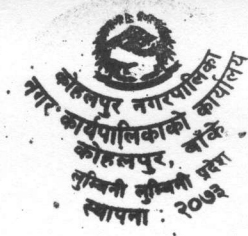 कोहलपुर नगरपालिका
नगर कार्यपालिकाको कार्यालय
कोहलपुर, बाँके
लुम्बिनी लुम्बिनी प्रदेश
स्थापना : २०७३